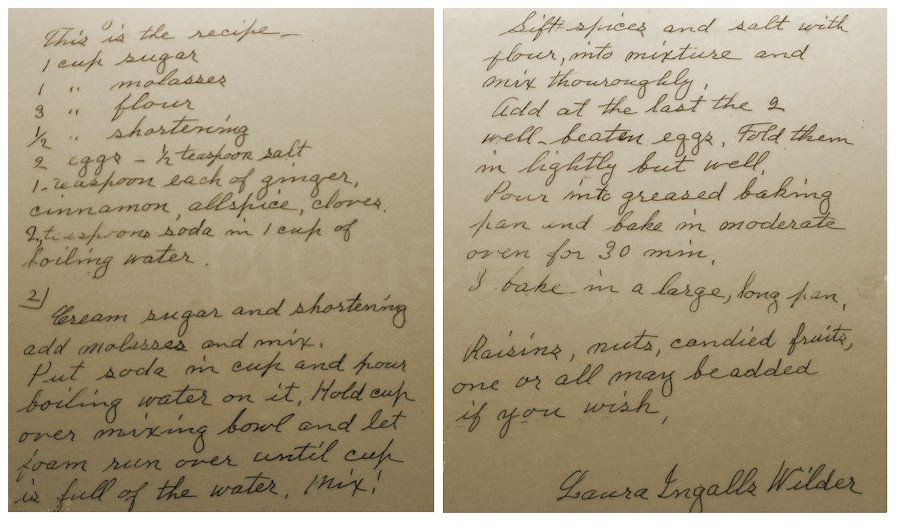 This is the recipe—
1 cup sugar
1 " molasses
3 " flour
1/2 " shortening
2 eggs – 1/2 teaspoon salt
1-teaspoon each of ginger,
cinnamon, allspice, cloves.
2 teaspoons soda in 1 cup of
boiling water.
2)
Cream sugar and shortening
add molasses and mix.
Put soda in cup and pour
boiling water on it. Hold cup
over mixing bowl and let
foam run over until cup
is full of the water. Mix!
Sift spices and salt with
flour, into mixture and
mix thouroughly.
Add at the last the 2
well-beaten eggs. Fold them
in lightly but well.
Pour into greased baking
pan and bake in moderate
oven for 30 min.
I bake in a large, long pan.
Raisins, nuts, candied fruits,
one or all may be added
if you wish,
Laura Ingalls Wilder